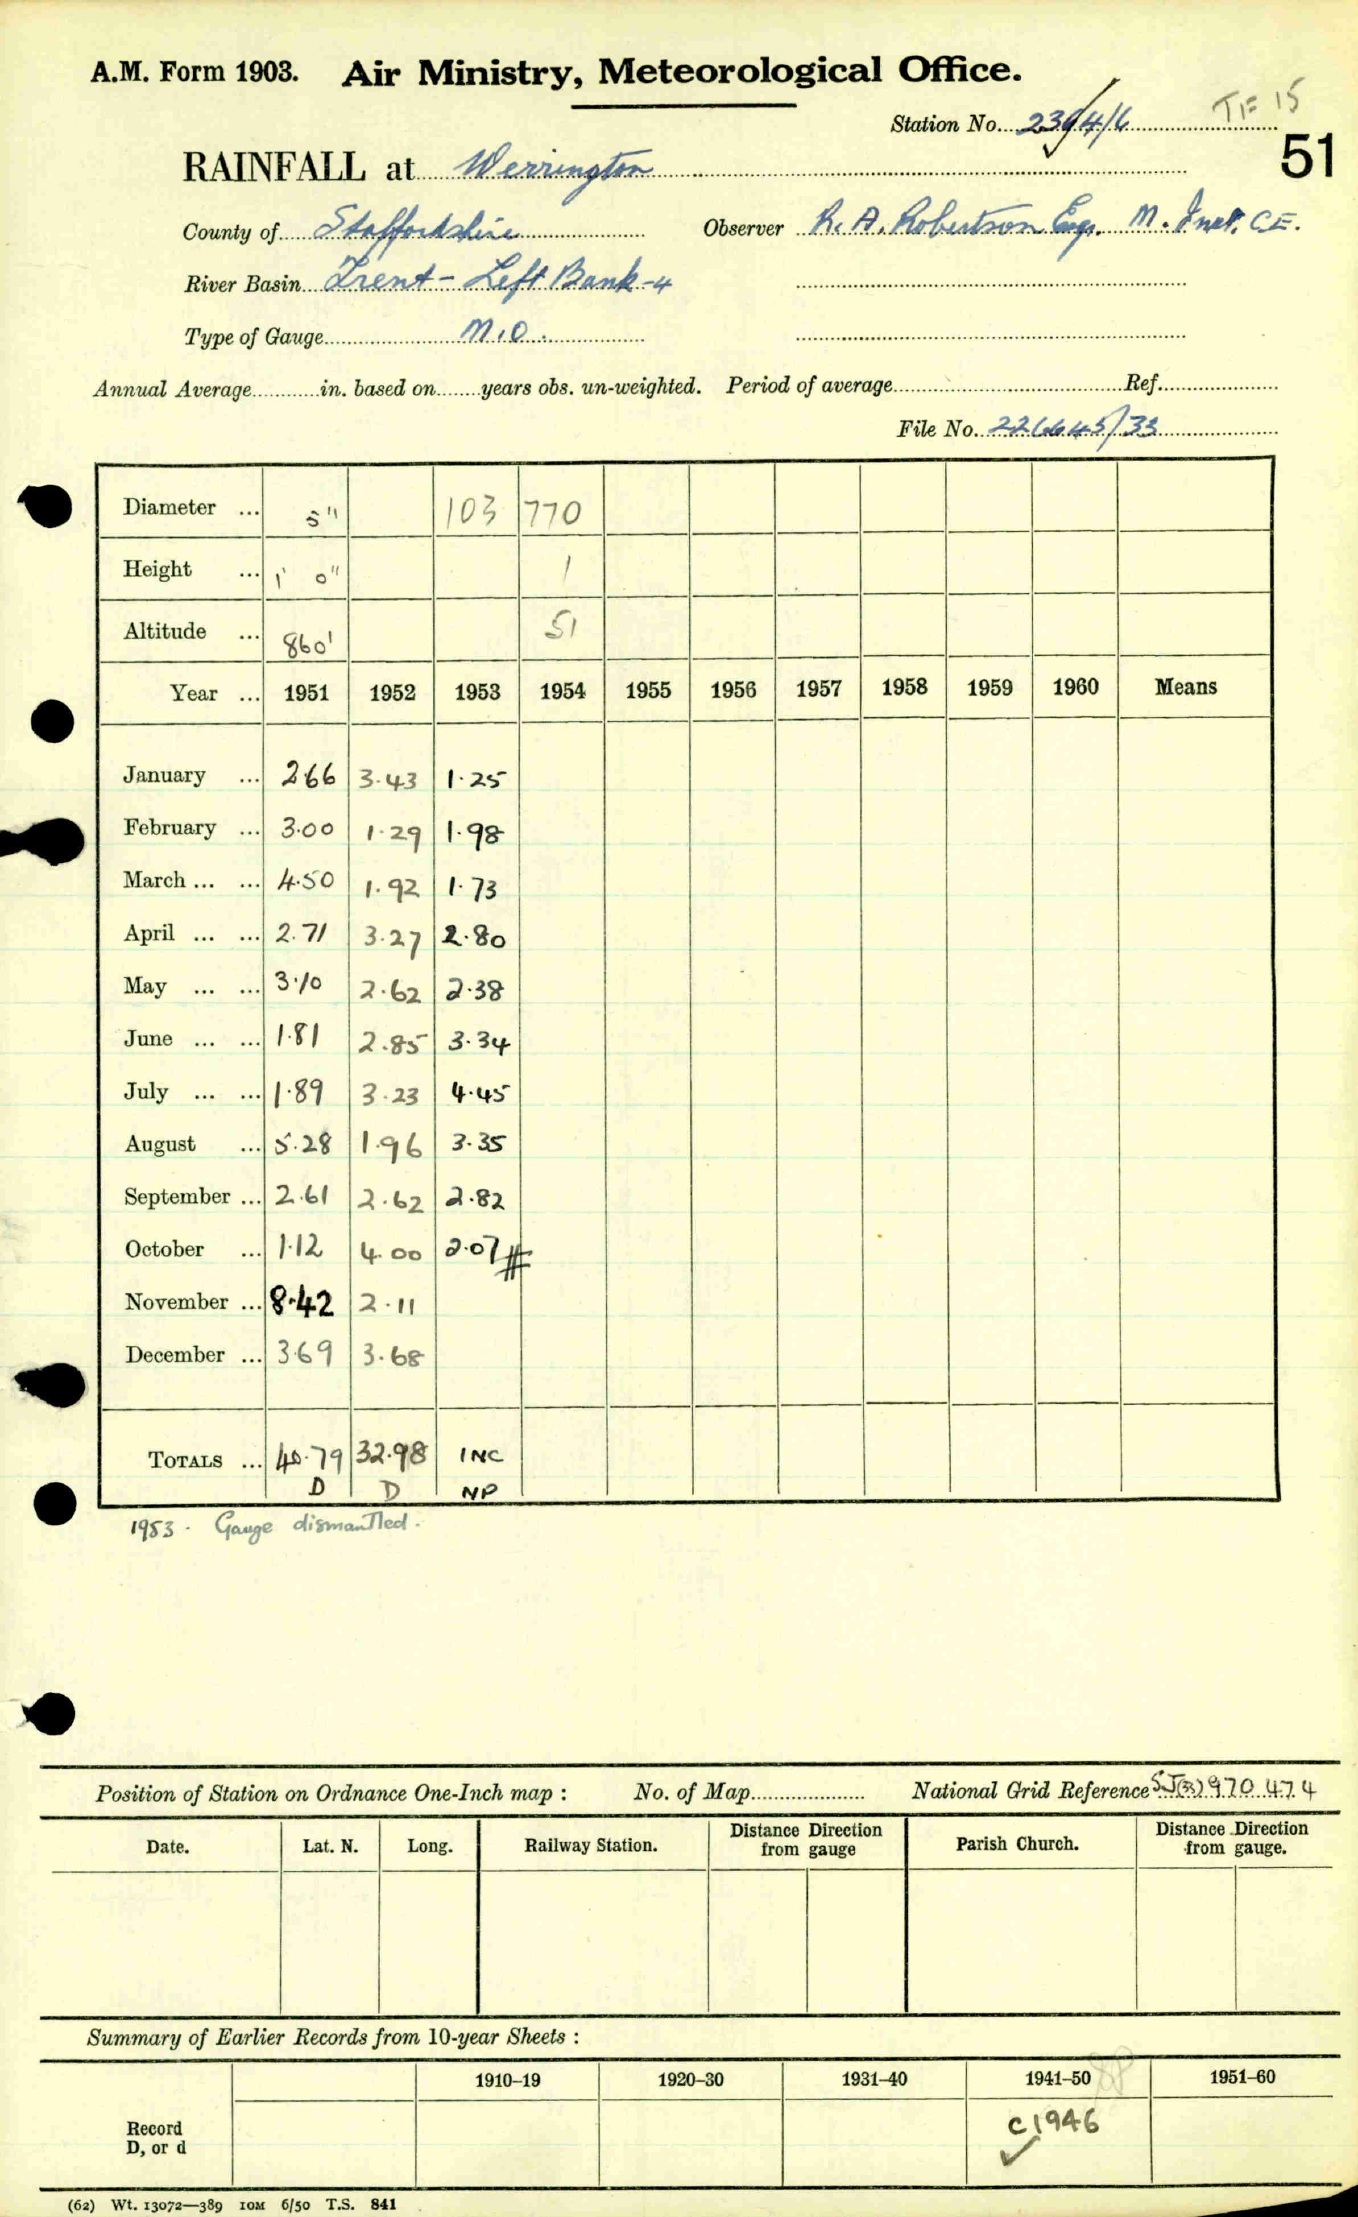 A.M. Form 1903. Air Ministry, Meteorological Office.
Station No. 2394/6 TF 15
51
RAINFALL at Werrington
County of Staffordshire Observer R. A. Robertson Esq. M. Inst. C.E.
River Basin Trent - Left Bank - 4
Type of Gauge M.O.
Annual Average in. based on years obs. un-weighted. Period of average Ref.
File No. 226645/33
Diameter ... 5" 103 770
Height ... 1' 0" 1
Altitude ... 860' 51
Year ... 1951 1952 1953 1954 1955 1956 1957 1958 1959 1960 Means
January ... 2.66 3.43 1.25
February ... 3.00 1.29 1.98
March ... ... 4.50 1.92 1.73
April ... ... 2.71 3.27 2.80
May ... ... 3.10 2.62 2.38
June ... ... 1.81 2.85 3.34
July ... ... 1.89 3.23 4.45
August ... 5.28 1.96 3.35
September ... 2.61 2.62 2.82
October ... 1.12 4.00 2.07 #
November ... 8.42 2.11
December ... 3.69 3.68
TOTALS ... 40.79 32.98 INC
D D NP
1953 . Gauge dismantled .
Position of Station on Ordnance One-Inch map : No. of Map National Grid Reference SJ(33) 970 474
Date. Lat. N. Long. Railway Station. Distance Direction from gauge Parish Church. Distance Direction from gauge.
Summary of Earlier Records from 10-year Sheets :
1910–19 1920–30 1931–40 1941–50 1951–60
Record
D, or d
C1946
(62) Wt. 13072—389 10M 6/50 T.S. 841